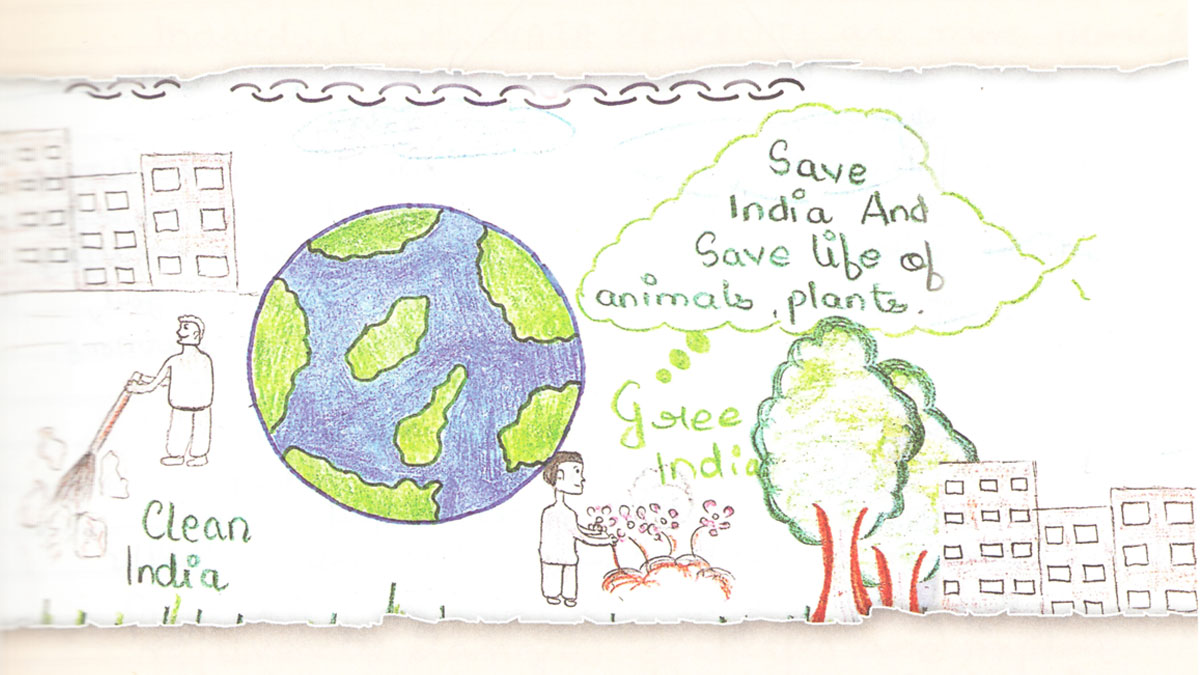 Save
India And
Save life of
animals, plants.
Gree
India
Clean
India